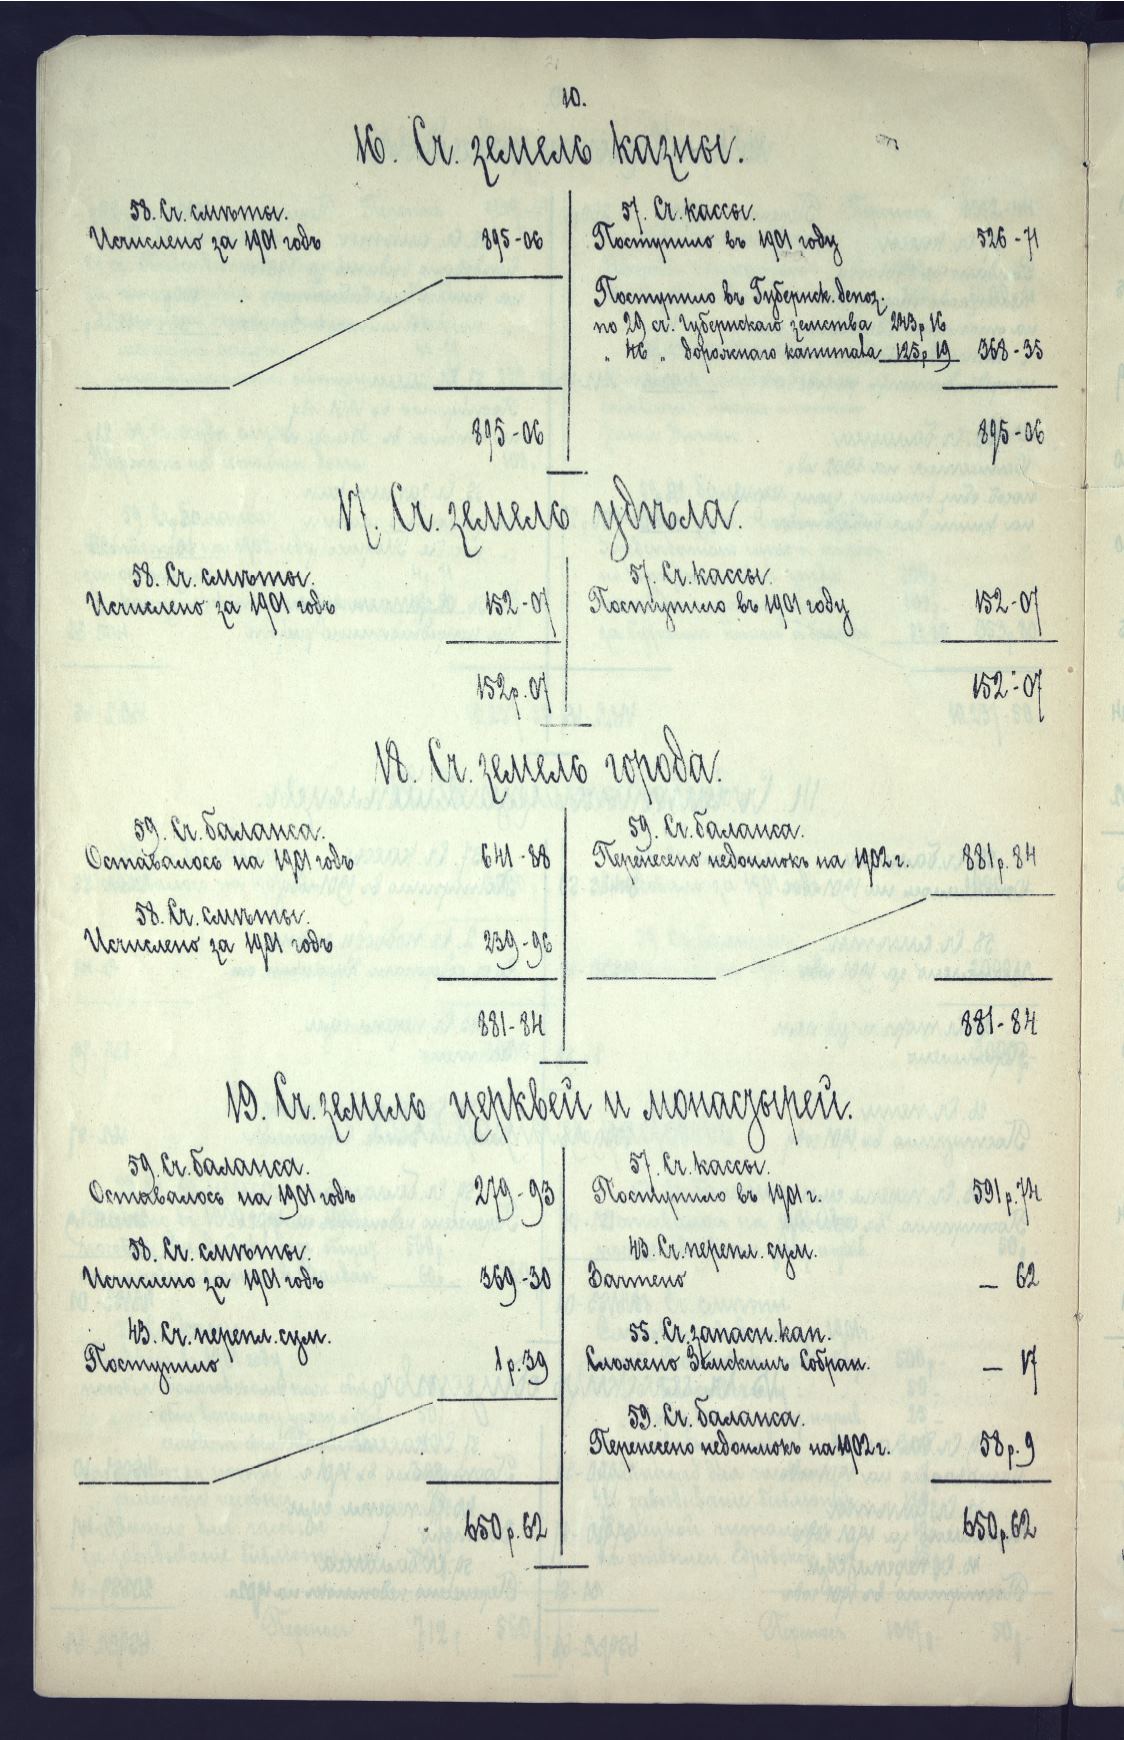 10.
16. Сч. земель казны.
58. Сч. смѣты.
Исчислено за 1901 годъ 895-06
895-06
57. Сч. кассы.
Поступило въ 1901 году 526-71
Поступило въ Губернск. депоз.
по 29 ст. Губернскаго земства 243 р 16
„ 46 „ дорожнаго капитала 125 р 19 368-35
895-06
17. Сч. земель удѣла.
58. Сч. смѣты.
Исчислено за 1901 годъ 152-07
152 р. 07
57. Сч. кассы.
Поступило въ 1901 году 152-07
152-07
18. Сч. земель города.
59. Сч. баланса.
Оставалось на 1901 годъ 641-88
58. Сч. смѣты.
Исчислено за 1901 годъ 239-96
881-84
59. Сч. баланса.
Перенесено недоимокъ на 1902 г. 881 р. 84
881-84
19. Сч. земель церквей и монастырей.
59. Сч. баланса.
Оставалось на 1901 годъ 279-93
58. Сч. смѣты.
Исчислено за 1901 годъ 369-30
43. Сч. перепл. сум.
Поступило 1 р. 39
650 р. 62
57. Сч. кассы.
Поступило въ 1901 г. 591 р. 74
43. Сч. перепл. сум.
Зачтено — 62
55. Сч. запасн. кап.
Сложено Земскимъ Собран. — 17
59. Сч. баланса.
Перенесено недоимокъ на 1902 г. 58 р. 9
650 р. 62